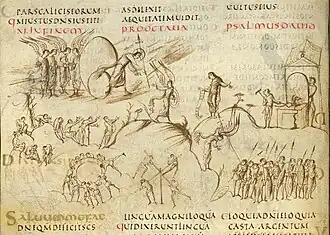 PARSCALICISEORUM
QMIUSTUSDNSIUSTITI
INFINEM
ASDILEXIT
AEQUITATEMUIDIT
PROOCTAUA
UULTUSEIUS
PSALMUSDAUID
SALUUMMEFAC
DNEQMDEFICITSCS
LINGUAMAGNILOQUA
QUIDIXERUNTLINGUA
ELOQUIADNIELOQUIA
CASTAARGENTUM